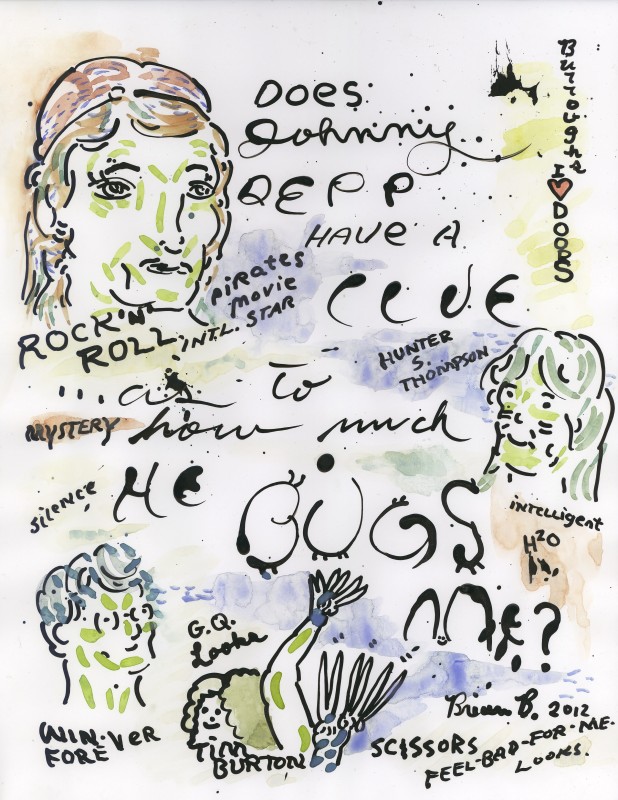 DOES
Johnny
DEPP
HAVE A
CLUE
...as to
how much
HE BUGS
ME?
Burroughs
I ♥ DOORS
PIRATES
MOVIE
INT'L. STAR
ROCK 'N'
ROLL
HUNTER
S.
THOMPSON
MYSTERY
SILENCE
INTELLIGENT
H2O
G.Q.
Looks
WIN-VER
FORE
TIM
BURTON
SCISSORS
Brian B. 2012
FEEL-BAD-FOR-ME-
LOOKS.